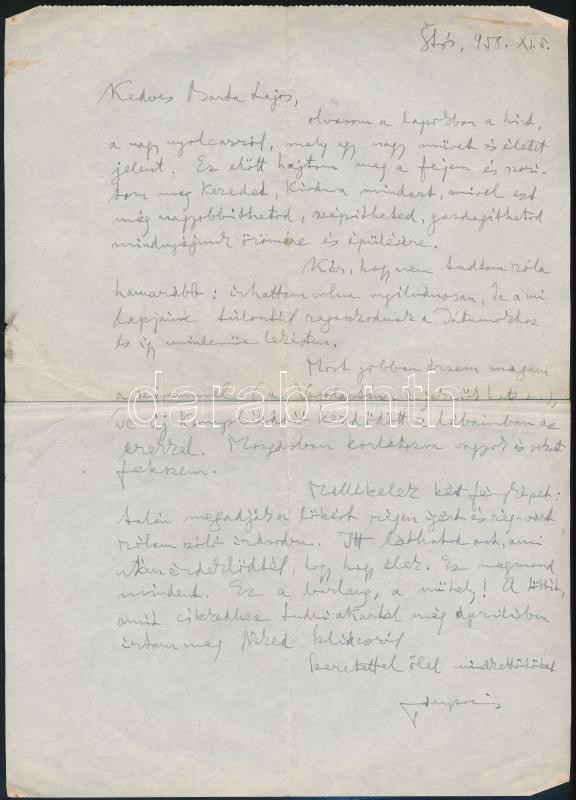 Štós, 958. XI. 5.
Kedves Barta Lajos,
olvasom a lapokban a hírt,
a nagy nyolcasról, mely egy nagy művet és életet
jelent. Ez előtt hajtom meg a fejem és szorí-
tom meg kezedet, kívánva mindazt, amivel ezt
még nagyobbíthatod, szépítheted, gazdagíthatod
mindnyájunk örömére és épülésére.
Kár, hogy nem tudtam róla
hamarább: írhattam volna nyilvánosan, de a mi
lapjaink túlontúl ragaszkodnak a dátumokhoz
és így mindenüe lekéstem.
Most jobban érzem magam
a
de új komplikáció kezdődött a lábaimban az
erekkel. Mozgásban korlátozva vagyok és sokat
fekszem.
Mellékelek két fényképet:
talán megadják a lökést régen ígért és rég várt
rólam szóló írásodra. Itt láthatod azt, ami
után érdeklődtél, hogy hogy élek. Ez megmond
mindent. Ez a barlang, a műhely! A többit,
amit cikkedhez tudni akartál még áprilisban
írtam meg Neked
Szeretettel ölel mindkettőtöket
darabanth